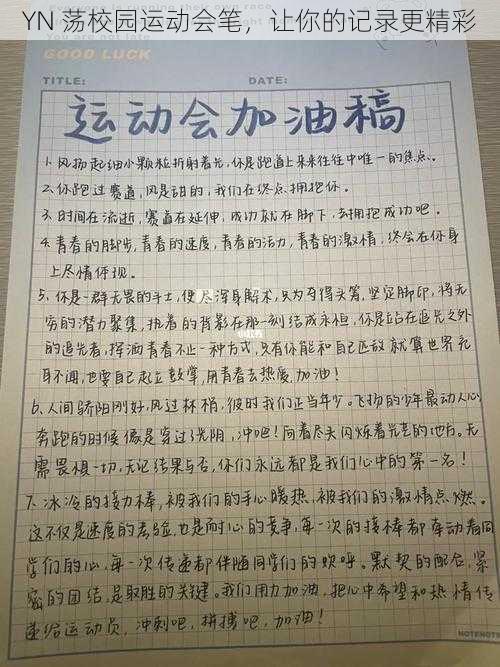 YN 荡校园运动会笔，让你的记录更精彩
GOOD LUCK
TITLE: DATE:
运动会加油稿
1. 风扬起细小颗粒折射着光，你是跑道上来来往往中唯一的焦点。
2. 你跑过赛道，风是甜的，我们在终点拥抱你。
3. 时间在流逝，赛道在延伸，成功就在脚下，去拥抱成功吧。
4. 青春的脚步，青春的速度，青春的活力，青春的激情，终会在你身
上尽情体现。
5. 你是一群无畏的斗士，使尽浑身解术，只为夺得头筹，坚定脚印，将无
穷的潜力聚集，执着的背影在那一刻结成永恒，你是站在追光之外
的追光者，挥洒青春不止一种方式，只有你能和自己匹敌，就算世界充
耳不闻，也要自己起立鼓掌，用青春去热度，加油！
6. 人间骄阳刚好，风过林梢，彼时我们正当年少。飞扬的少年最动人心
奔跑的时候像是穿过光阴，冲吧！向着尽头闪烁着光芒的地方。无
需畏惧一切，无论结果与否，你们永远都是我们心中的第一名！
7. 冰冷的接力棒，被我们的手心暖热，被我们的激情点燃。
这不仅是速度的考验，也是耐心的竞争，每一次的接棒都牵动着同
学们的心，每一次传递都伴随同学们的欢呼。默契的配合，紧
密的团结，是取胜的关键。我们用力加油，把心中希望和热情传
递给运动员，冲刺吧，拼搏吧，加油！
NOTENOTE